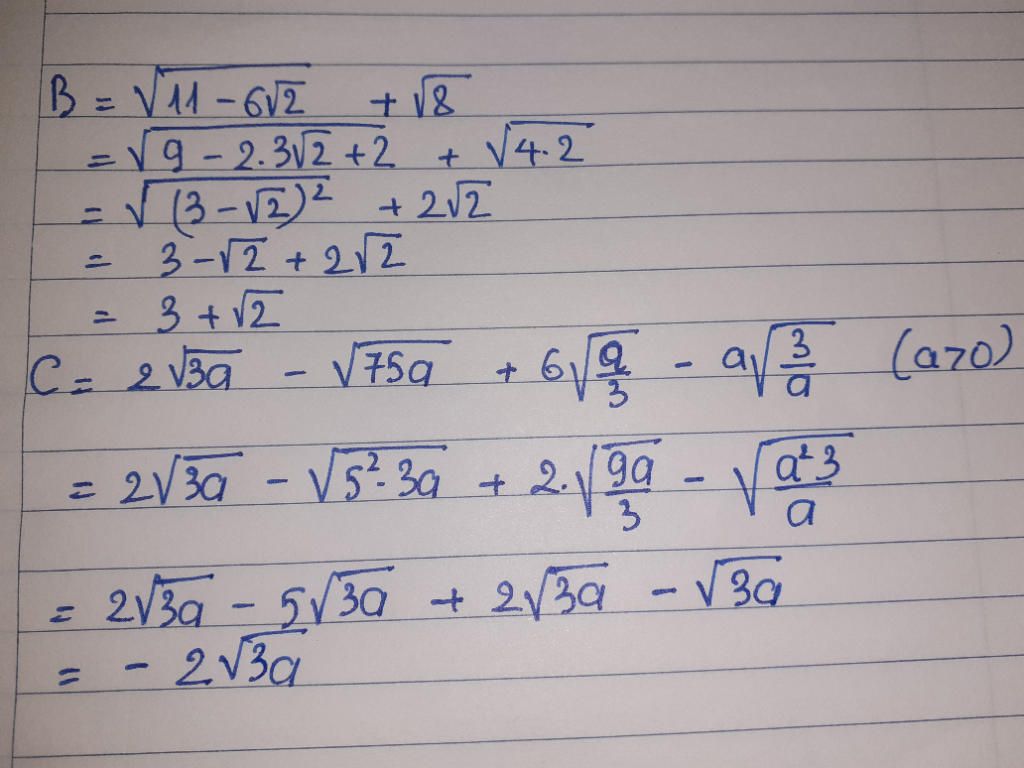 B = √(11 - 6√2) + √8
= √(9 - 2.3√2 + 2) + √(4.2)
= √((3 - √2)²) + 2√2
= 3 - √2 + 2√2
= 3 + √2
C = 2√(3a) - √(75a) + 6√(a/3) - a√(3/a) (a>0)
= 2√(3a) - √(5².3a) + 2.√(9a/3) - √(a²3/a)
= 2√(3a) - 5√(3a) + 2√(3a) - √(3a)
= - 2√(3a)